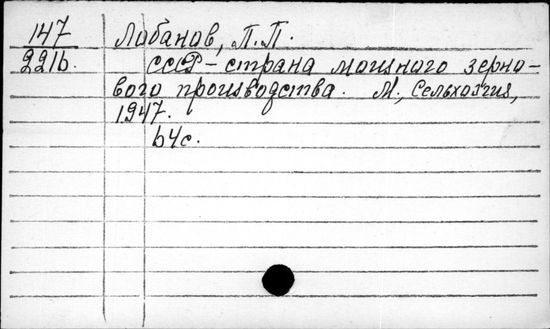 147 Лобанов, П.П.
221б. СССР – страна мощного зерно-
вого производства. М., Сельхозгиз,
1947.
64с.